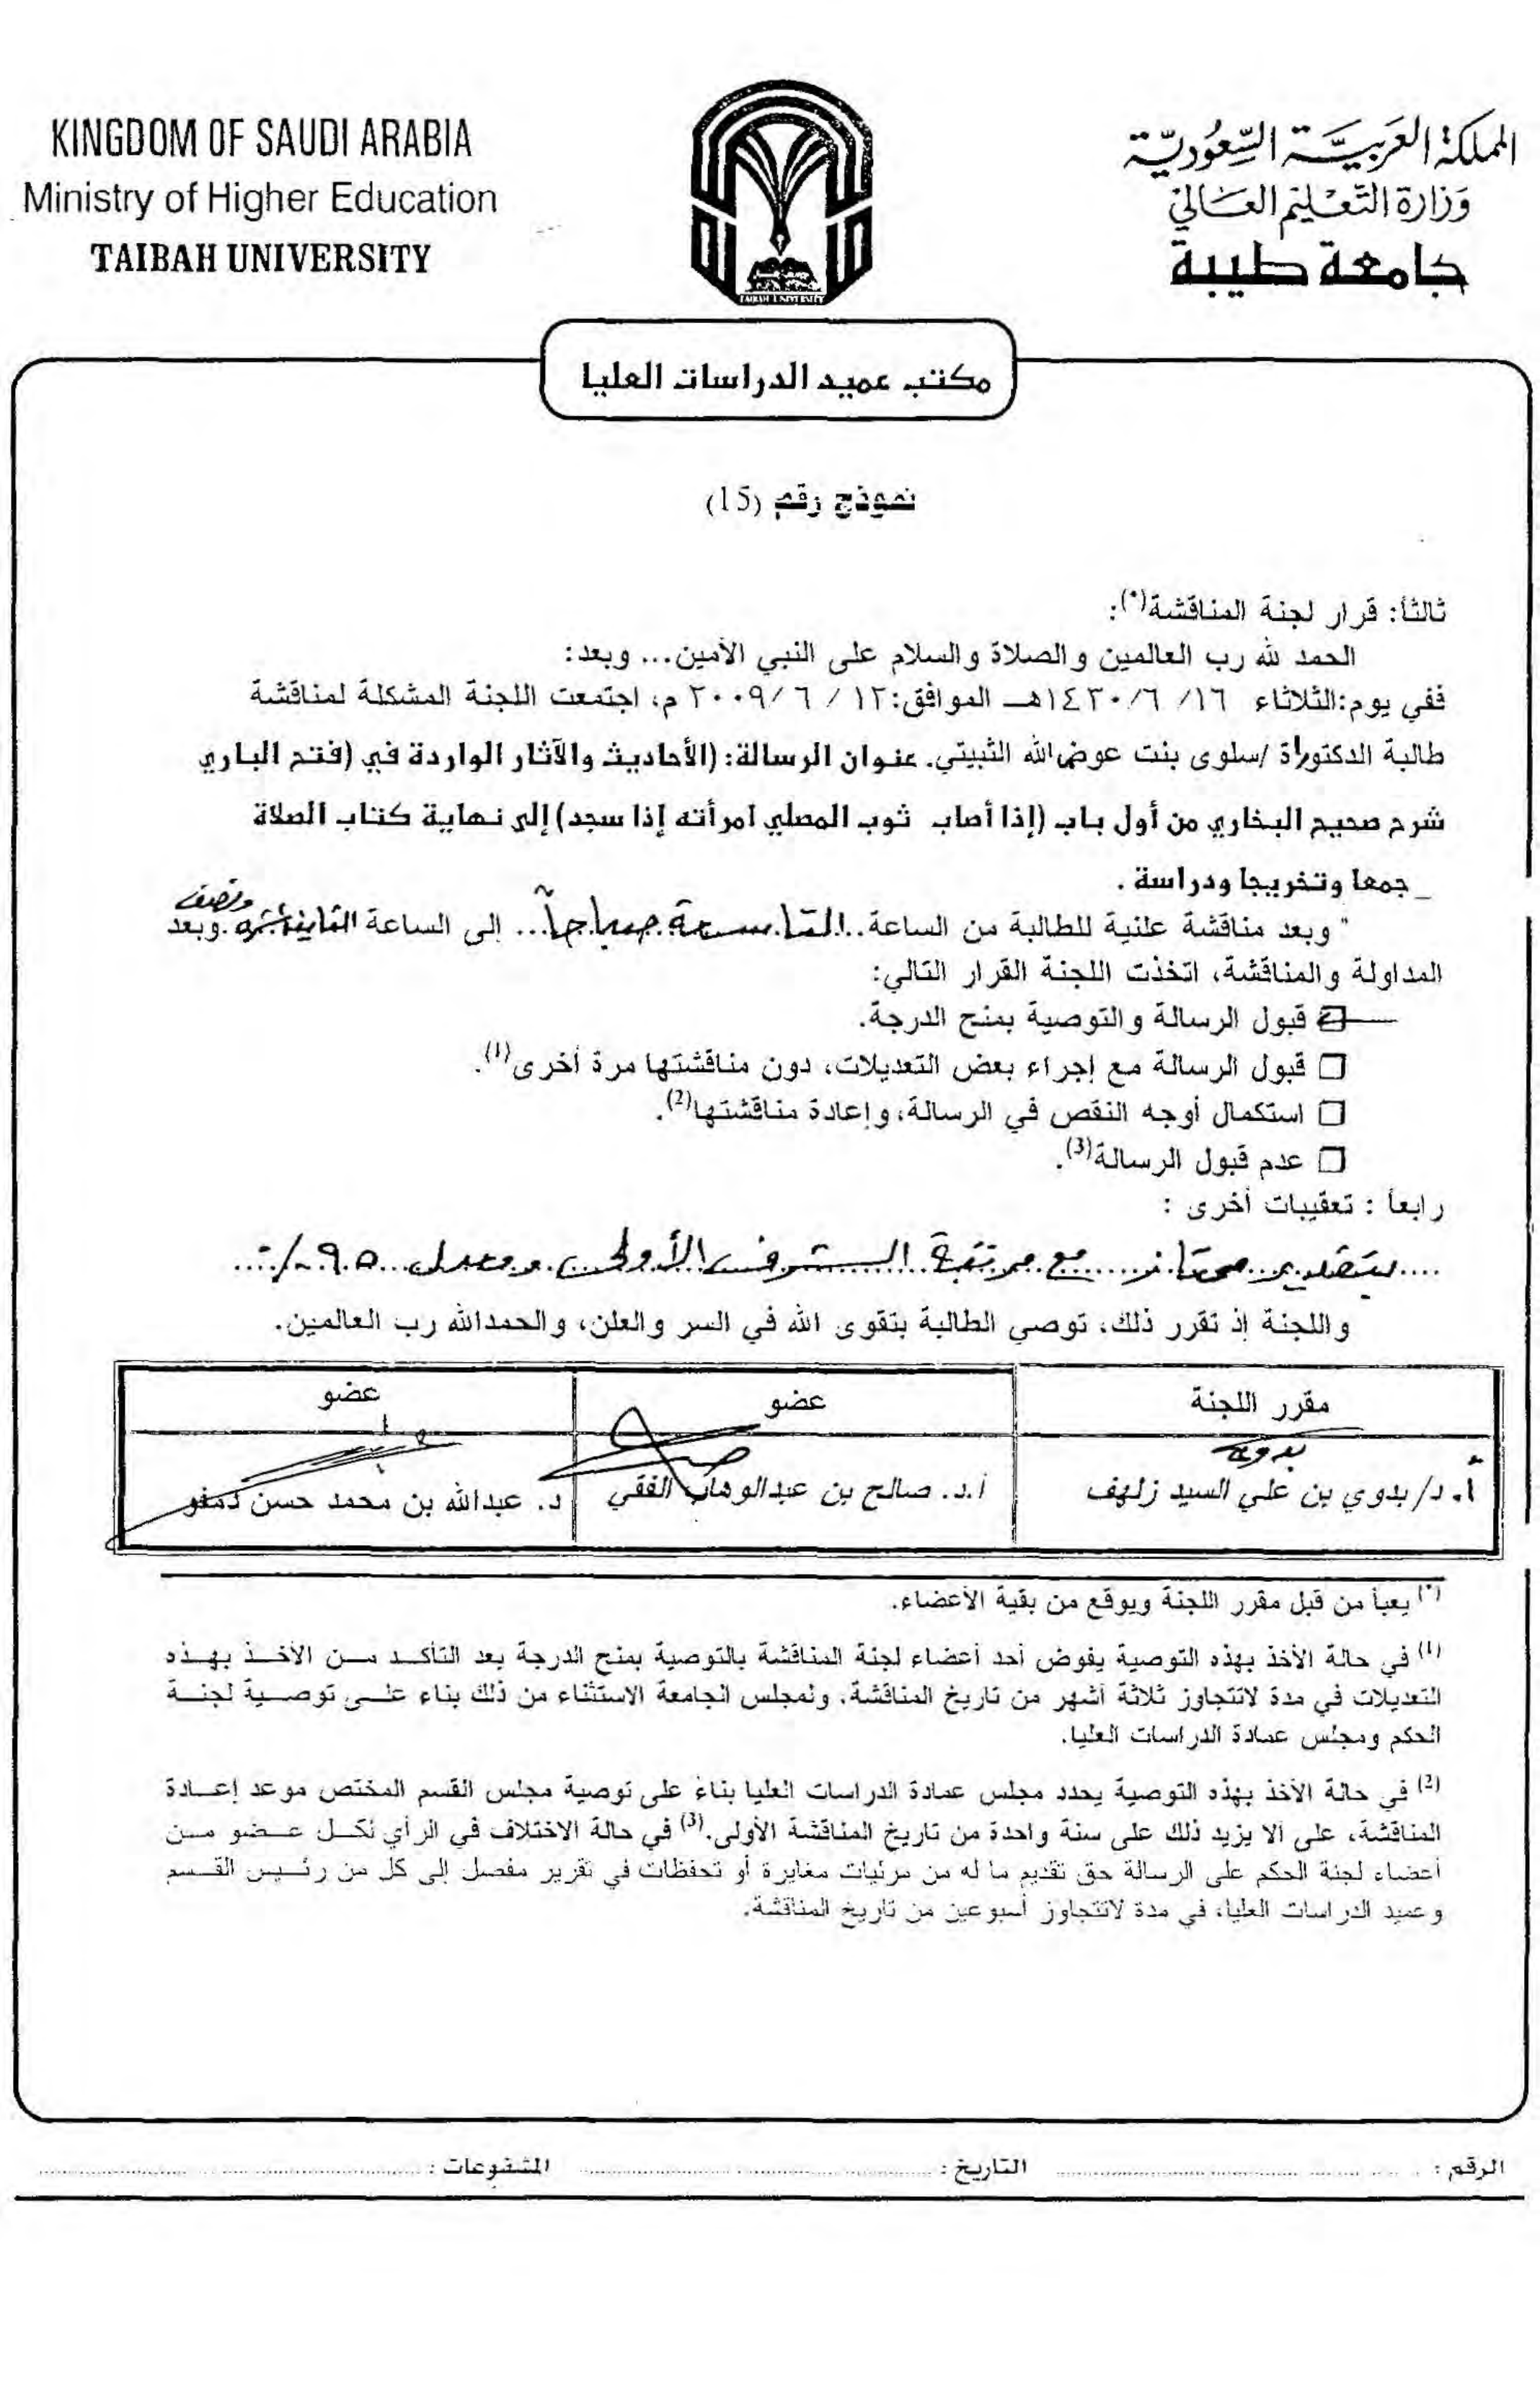 KINGDOM OF SAUDI ARABIA
Ministry of Higher Education
TAIBAH UNIVERSITY
المملكة العربية السعودية
وزارة التعليم العالي
جامعة طيبة
TAIBAH UNIVERSITY
مكتب عميد الدراسات العليا
نموذج رقم (15)
ثالثاً: قرار لجنة المناقشة(*):
الحمد لله رب العالمين والصلاة والسلام على النبي الأمين... وبعد:
ففي يوم:الثلاثاء ١٦/ ٦/ ١٤٣٠هـ الموافق:١٢ / ٦ /٢٠٠٩ م، اجتمعت اللجنة المشكلة لمناقشة
طالبة الدكتوراة /سلوى بنت عوض الله الثبيتي. عنوان الرسالة: (الأحاديث والآثار الواردة في (فتح الباري
شرح صحيح البخاري من أول باب (إذا أصاب ثوب المصلي امرأته إذا سجد) إلى نهاية كتاب الصلاة
_ جمعا وتخريجا ودراسة .
" وبعد مناقشة علنية للطالبة من الساعة..التاسعة صباحاً... إلى الساعة الثانية عشرة ونصف .وبعد
المداولة والمناقشة، اتخذت اللجنة القرار التالي:
☑ قبول الرسالة والتوصية بمنح الدرجة.
□ قبول الرسالة مع إجراء بعض التعديلات، دون مناقشتها مرة أخرى(1).
□ استكمال أوجه النقص في الرسالة، وإعادة مناقشتها(2).
□ عدم قبول الرسالة(3).
رابعاً : تعقيبات أخرى :
....بتقدير ممتاز مع مرتبة الشرف الأولى وبمعدل ٩٥٪...
واللجنة إذ تقرر ذلك، توصي الطالبة بتقوى الله في السر والعلن، والحمدالله رب العالمين.
مقرر اللجنة عضو عضو
بدوي
أ. د/ بدوي بن علي السيد زلهف أ.د. صالح بن عبدالوهاب الفقي د. عبدالله بن محمد حسن دمفو
(*) يعبأ من قبل مقرر اللجنة ويوقع من بقية الأعضاء.
(1) في حالة الأخذ بهذه التوصية يفوض أحد أعضاء لجنة المناقشة بالتوصية بمنح الدرجة بعد التأكد من الأخذ بهذه
التعديلات في مدة لاتتجاوز ثلاثة أشهر من تاريخ المناقشة، ولمجلس الجامعة الاستثناء من ذلك بناء على توصية لجنة
الحكم ومجلس عمادة الدراسات العليا.
(2) في حالة الأخذ بهذه التوصية يحدد مجلس عمادة الدراسات العليا بناءً على توصية مجلس القسم المختص موعد إعادة
المناقشة، على ألا يزيد ذلك على سنة واحدة من تاريخ المناقشة الأولى.(3) في حالة الاختلاف في الرأي لكل عضو من
أعضاء لجنة الحكم على الرسالة حق تقديم ما له من مرئيات مغايرة أو تحفظات في تقرير مفصل إلى كل من رئيس القسم
وعميد الدراسات العليا، في مدة لاتتجاوز أسبوعين من تاريخ المناقشة.
الرقم : التاريخ : المشفوعات :